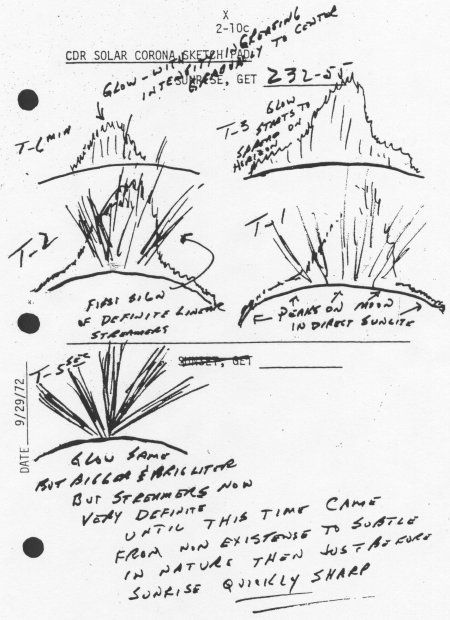 X
2-10c
CDR SOLAR CORONA SKETCH PAD
SUNRISE, GET 232-55
GLOW - WITH INCREASING
INTENSITY
GRADUALLY TO CENTER
T-6 MIN
T-3 GLOW
STARTS TO
SPREAD ON
HORIZON
T-2
T-1
FIRST SIGN
OF DEFINITE LINEAR
STREAMERS
PEAKS ON MOON
IN DIRECT SUNLITE
SUNSET, GET
T-5 SEC
DATE 9/29/72
GLOW SAME
BUT BIGGER & BRIGHTER
BUT STREAMERS NOW
VERY DEFINITE
UNTIL THIS TIME CAME
FROM NON EXISTENSE TO SUBTLE
IN NATURE THEN JUST BEFORE
SUNRISE QUICKLY SHARP